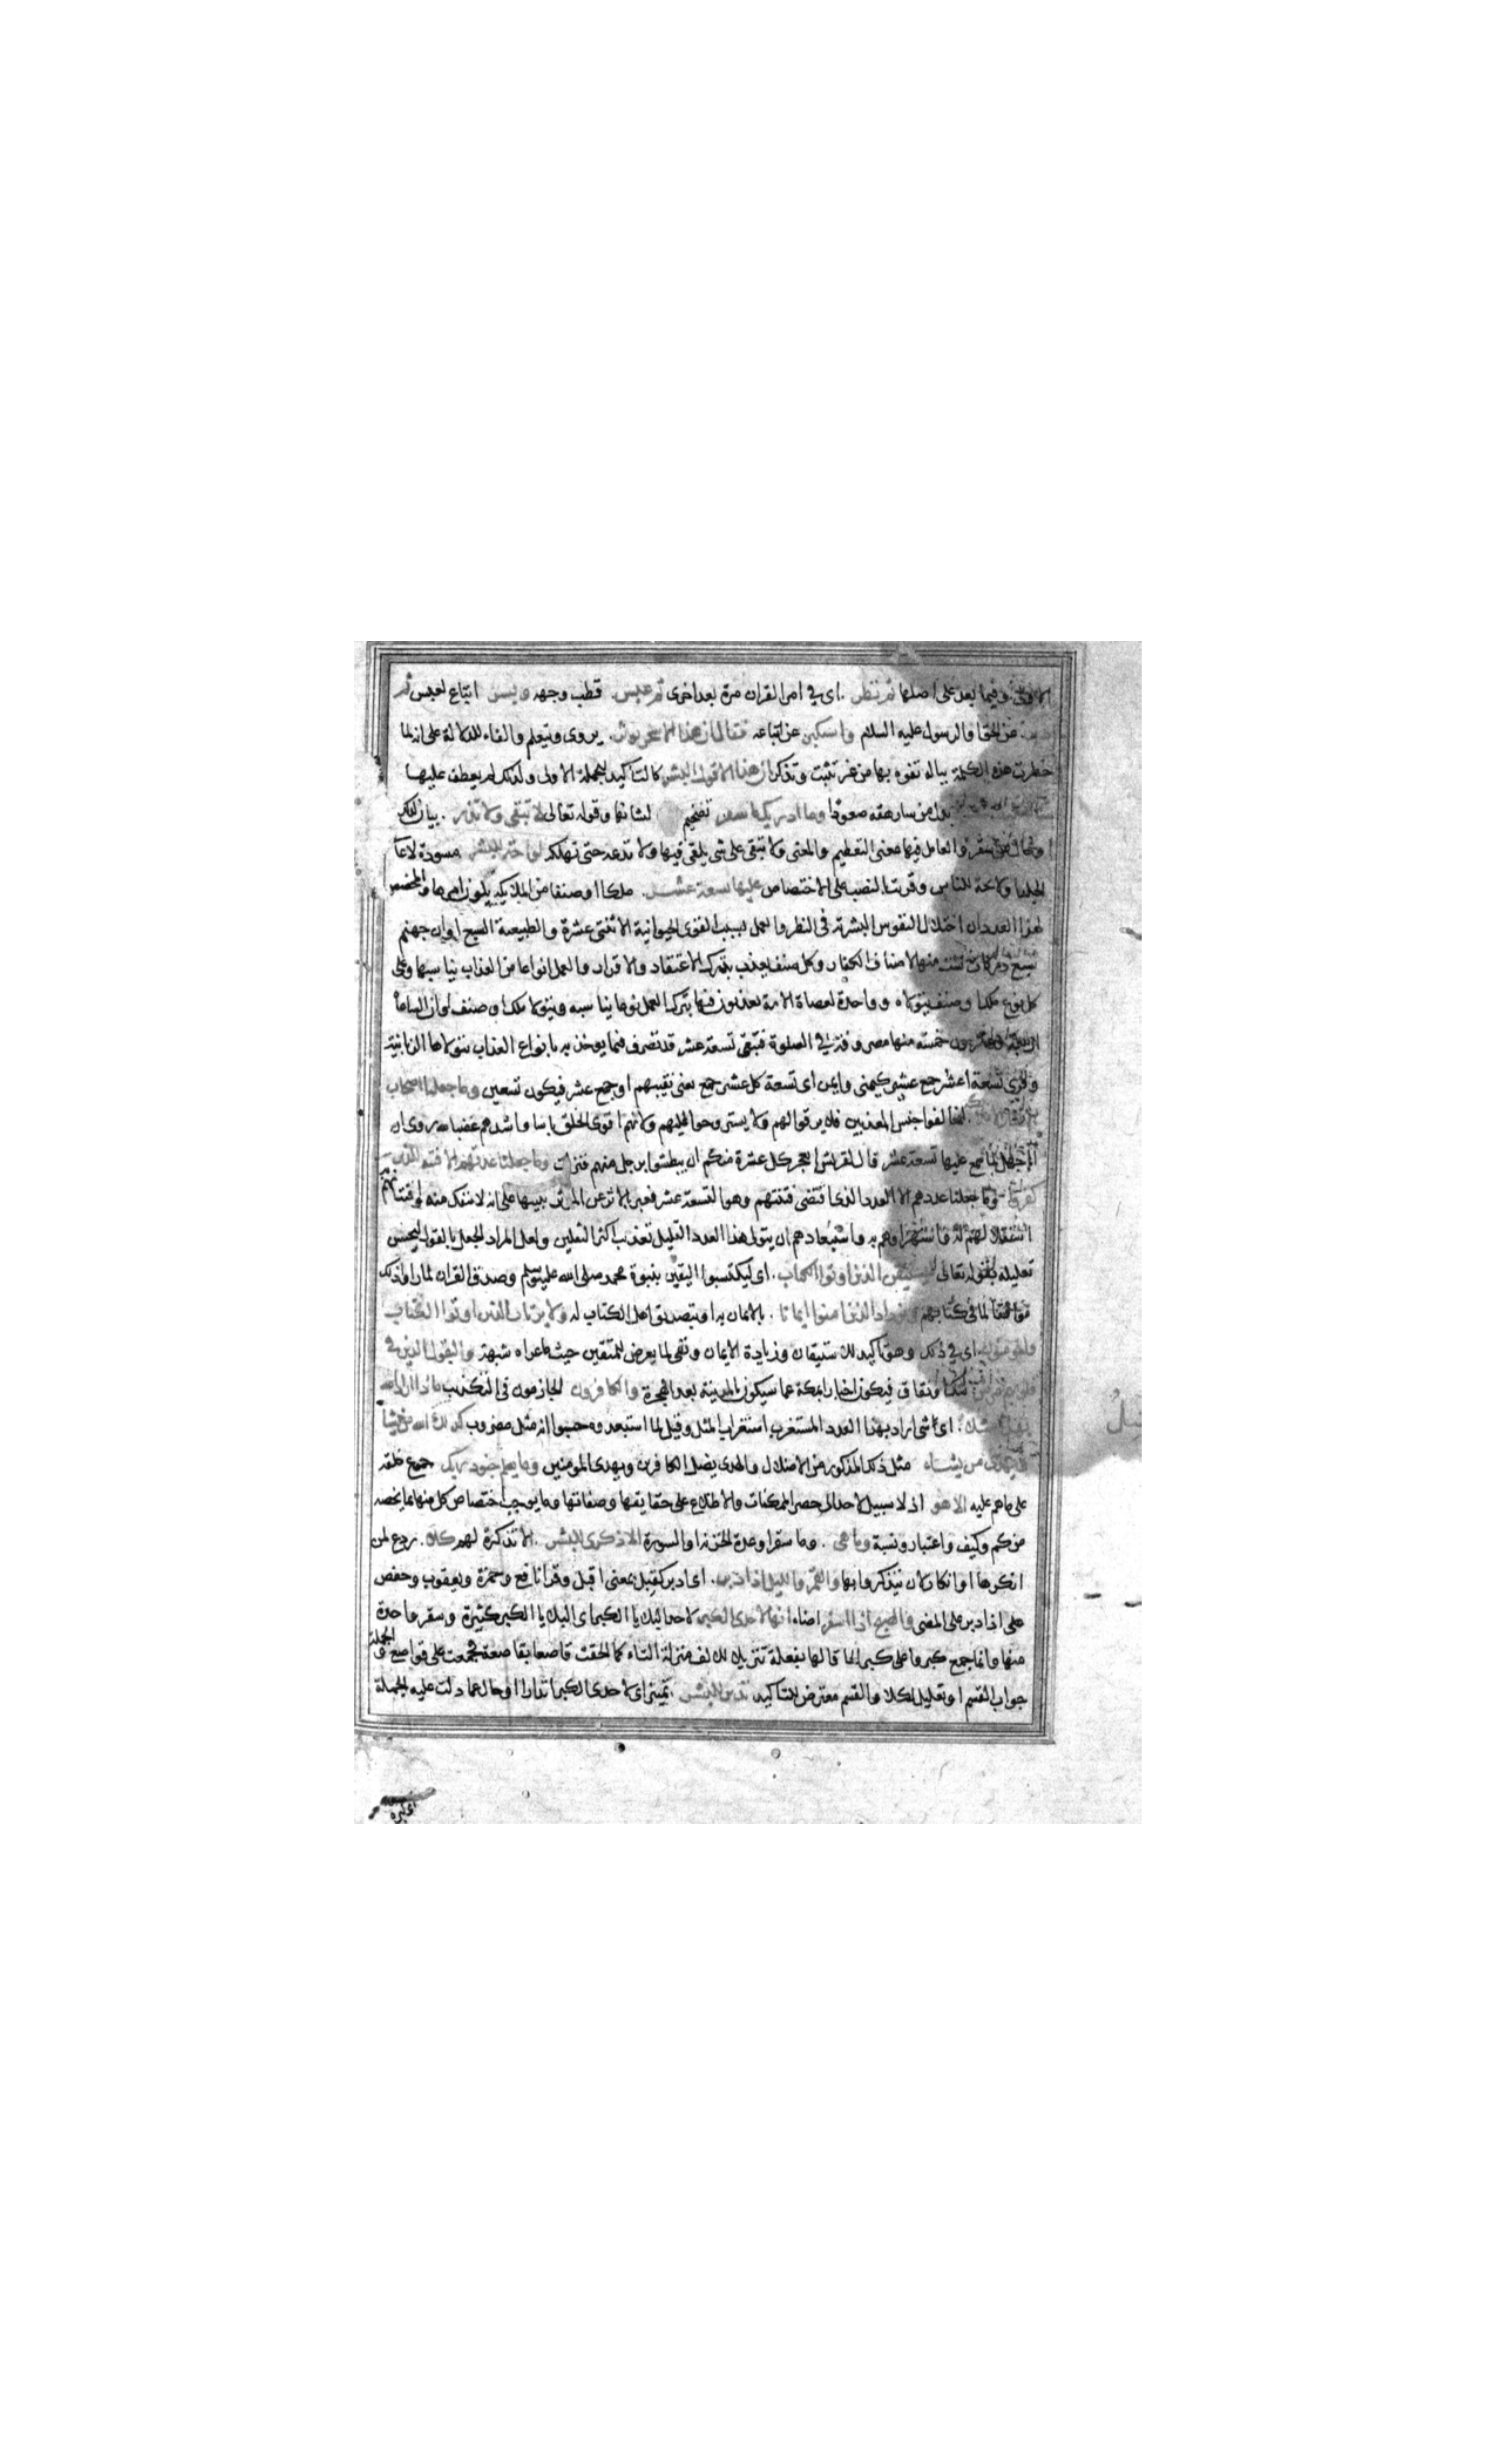 الاولى وفيما بعد على اصلها ثم نظر . اى في امر القران مرة بعد اخرى ثم عبس . قطب وجهه وبسر اتباع لعبس ثم
عن الحق او الرسول عليه السلام واستكبر عن اتباعه فقال ان هذا الا سحر يوثر . يروى ويتعلم والفاء للدلالة على انه لما
خطرت هذه الكلمة بباله تفوه بها من غير تثبت وتفكر ان هذا الا قول البشر كالتاكيد للجملة الاولى ولذلك لم يعطف عليها
بدل من سارهقه صعودا وما ادريك ما سقر تفخيم لشانها وقوله تعالى لا تبقى ولا تذر . بيان لذلك
او حال من سقر والعامل فيها معنى التعظيم والمعنى ولا تبقى على شى يلقى فيها ولا تدعه حتى تهلكه لواحة للبشر مسودة لاعا
الجلد او لائحة للناس وقرئت بالنصب على الاختصاص عليها تسعة عشر . ملكا او صنفا من الملائكة يلون امرها والمخصص
لهذا العدد ان اختلال النفوس البشرية فى النظر والعمل بسبب القوى الحيوانية الاثنتى عشرة والطبيعية السبع او ان جهنم
سبع دركات ست منها لاصناف الكفار وكل صنف يعذب بترك الاعتقاد والاقرار والعمل انواعا من العذاب يناسبها وعلى
كل نوع ملك او صنف يتولاه وواحدة لعصاة الامة يعذبون فيها بترك العمل نوعا يناسبه ويتولاه ملك او صنف او ان الساعات
اربعة وعشرون خمسة منها مصروفة في الصلوة فتبقى تسعة عشر قد تصرف فيما يوخذ به بانواع العذاب يتولاها الزبانية
وقرى تسعة اعشر جمع عشير كيمين وايمن اى تسعة كل عشير جمع يعنى نقيبهم او جمع عشر فيكون تسعين وما جعلنا اصحاب
النار الا ملائكة ليخالفوا جنس المعذبين فلا يرقوا لهم ولا يستروحوا اليهم ولانهم اقوى الخلق باسا واشدهم غضبا لله روى ان
ابا جهل لما سمع عليها تسعة عشر قال لقريش ايعجز كل عشرة منكم ان يبطشوا برجل منهم فنزلت وما جعلنا عدتهم الا فتنة للذين
كفروا . وما جعلنا عددهم الا العدد الذى اقتضى فتنتهم وهو التسعة عشر فعبر بالاثر عن المؤثر تنبيها على انه لا ينفك منه وافتتانهم به
استقلالهم له واستهزاوهم به واستبعادهم ان يتولى هذا العدد القليل تعذيب اكثر الثقلين ولعل المراد الجعل بالقول ليحسن
تعليله بقوله تعالى ليستيقن الذين اوتوا الكتاب . اى ليكتسبوا اليقين بنبوة محمد صلى الله عليه وسلم وصدق القران لما راوا ذلك
موافقا لما فى كتابهم ويزداد الذين امنوا ايمانا . بالايمان به او بتصديق اهل الكتاب له ولا يرتاب الذين اوتوا الكتاب
والمومنون اى في ذلك وهو تاكيد للاستيقان وزيادة الايمان ونفى لما يعرض للمتيقن حيث ما عراه شبهة وليقول الذين في
قلوبهم مرض شك او نفاق فيكون اخبارا بمكة عما سيكون بالمدينة بعد الهجرة والكافرون الجازمون فى التكذيب ماذا اراد الله
بهذا مثلا : اى شى اراد بهذا العدد المستغرب استغراب المثل وقيل لما استبعدوه حسبوا انه مثل مضروب كذلك يضل الله من يشا
ويهدى من يشاء مثل ذلك المذكور من الاضلال والهدى يضل الكافرين ويهدى المومنين وما يعلم جنود ربك جموع خلقه
على ما هم عليه الا هو اذ لا سبيل لاحد الى حصر الممكنات والاطلاع على حقايقها وصفاتها وما يوجب اختصاص كل منها بما يخصه
من كم وكيف واعتبار ونسبة وما هى . وما سقر او عدة الخزنة او السورة الا ذكرى للبشر . الا تذكرة لهم كلا . ردع لمن
انكرها او انكار لان يتذكروا بها والقمر والليل اذا ادبر . اى ادبر كقبل بمعنى اقبل وقرا نافع وحمزة ويعقوب وحفص
على اذا دبر على المضى والصبح اذا اسفر اضاء انها لاحدى الكبر لاحد البلايا الكبر اى البلايا الكبر كثيرة وسقر واحدة
منها وانما جمع كبرى على كبر الحاقا لها بفعلة تنزيلا للالف منزلة التاء كما الحقت قاصعا بقاصعة فجمعت على قواصع والجملة
جواب القسم او تعليل لكلا والقسم معترض للتاكيد نذيرا للبشر . تمييز اى لاحدى الكبر انذارا او حال عما دلت عليه الجملة